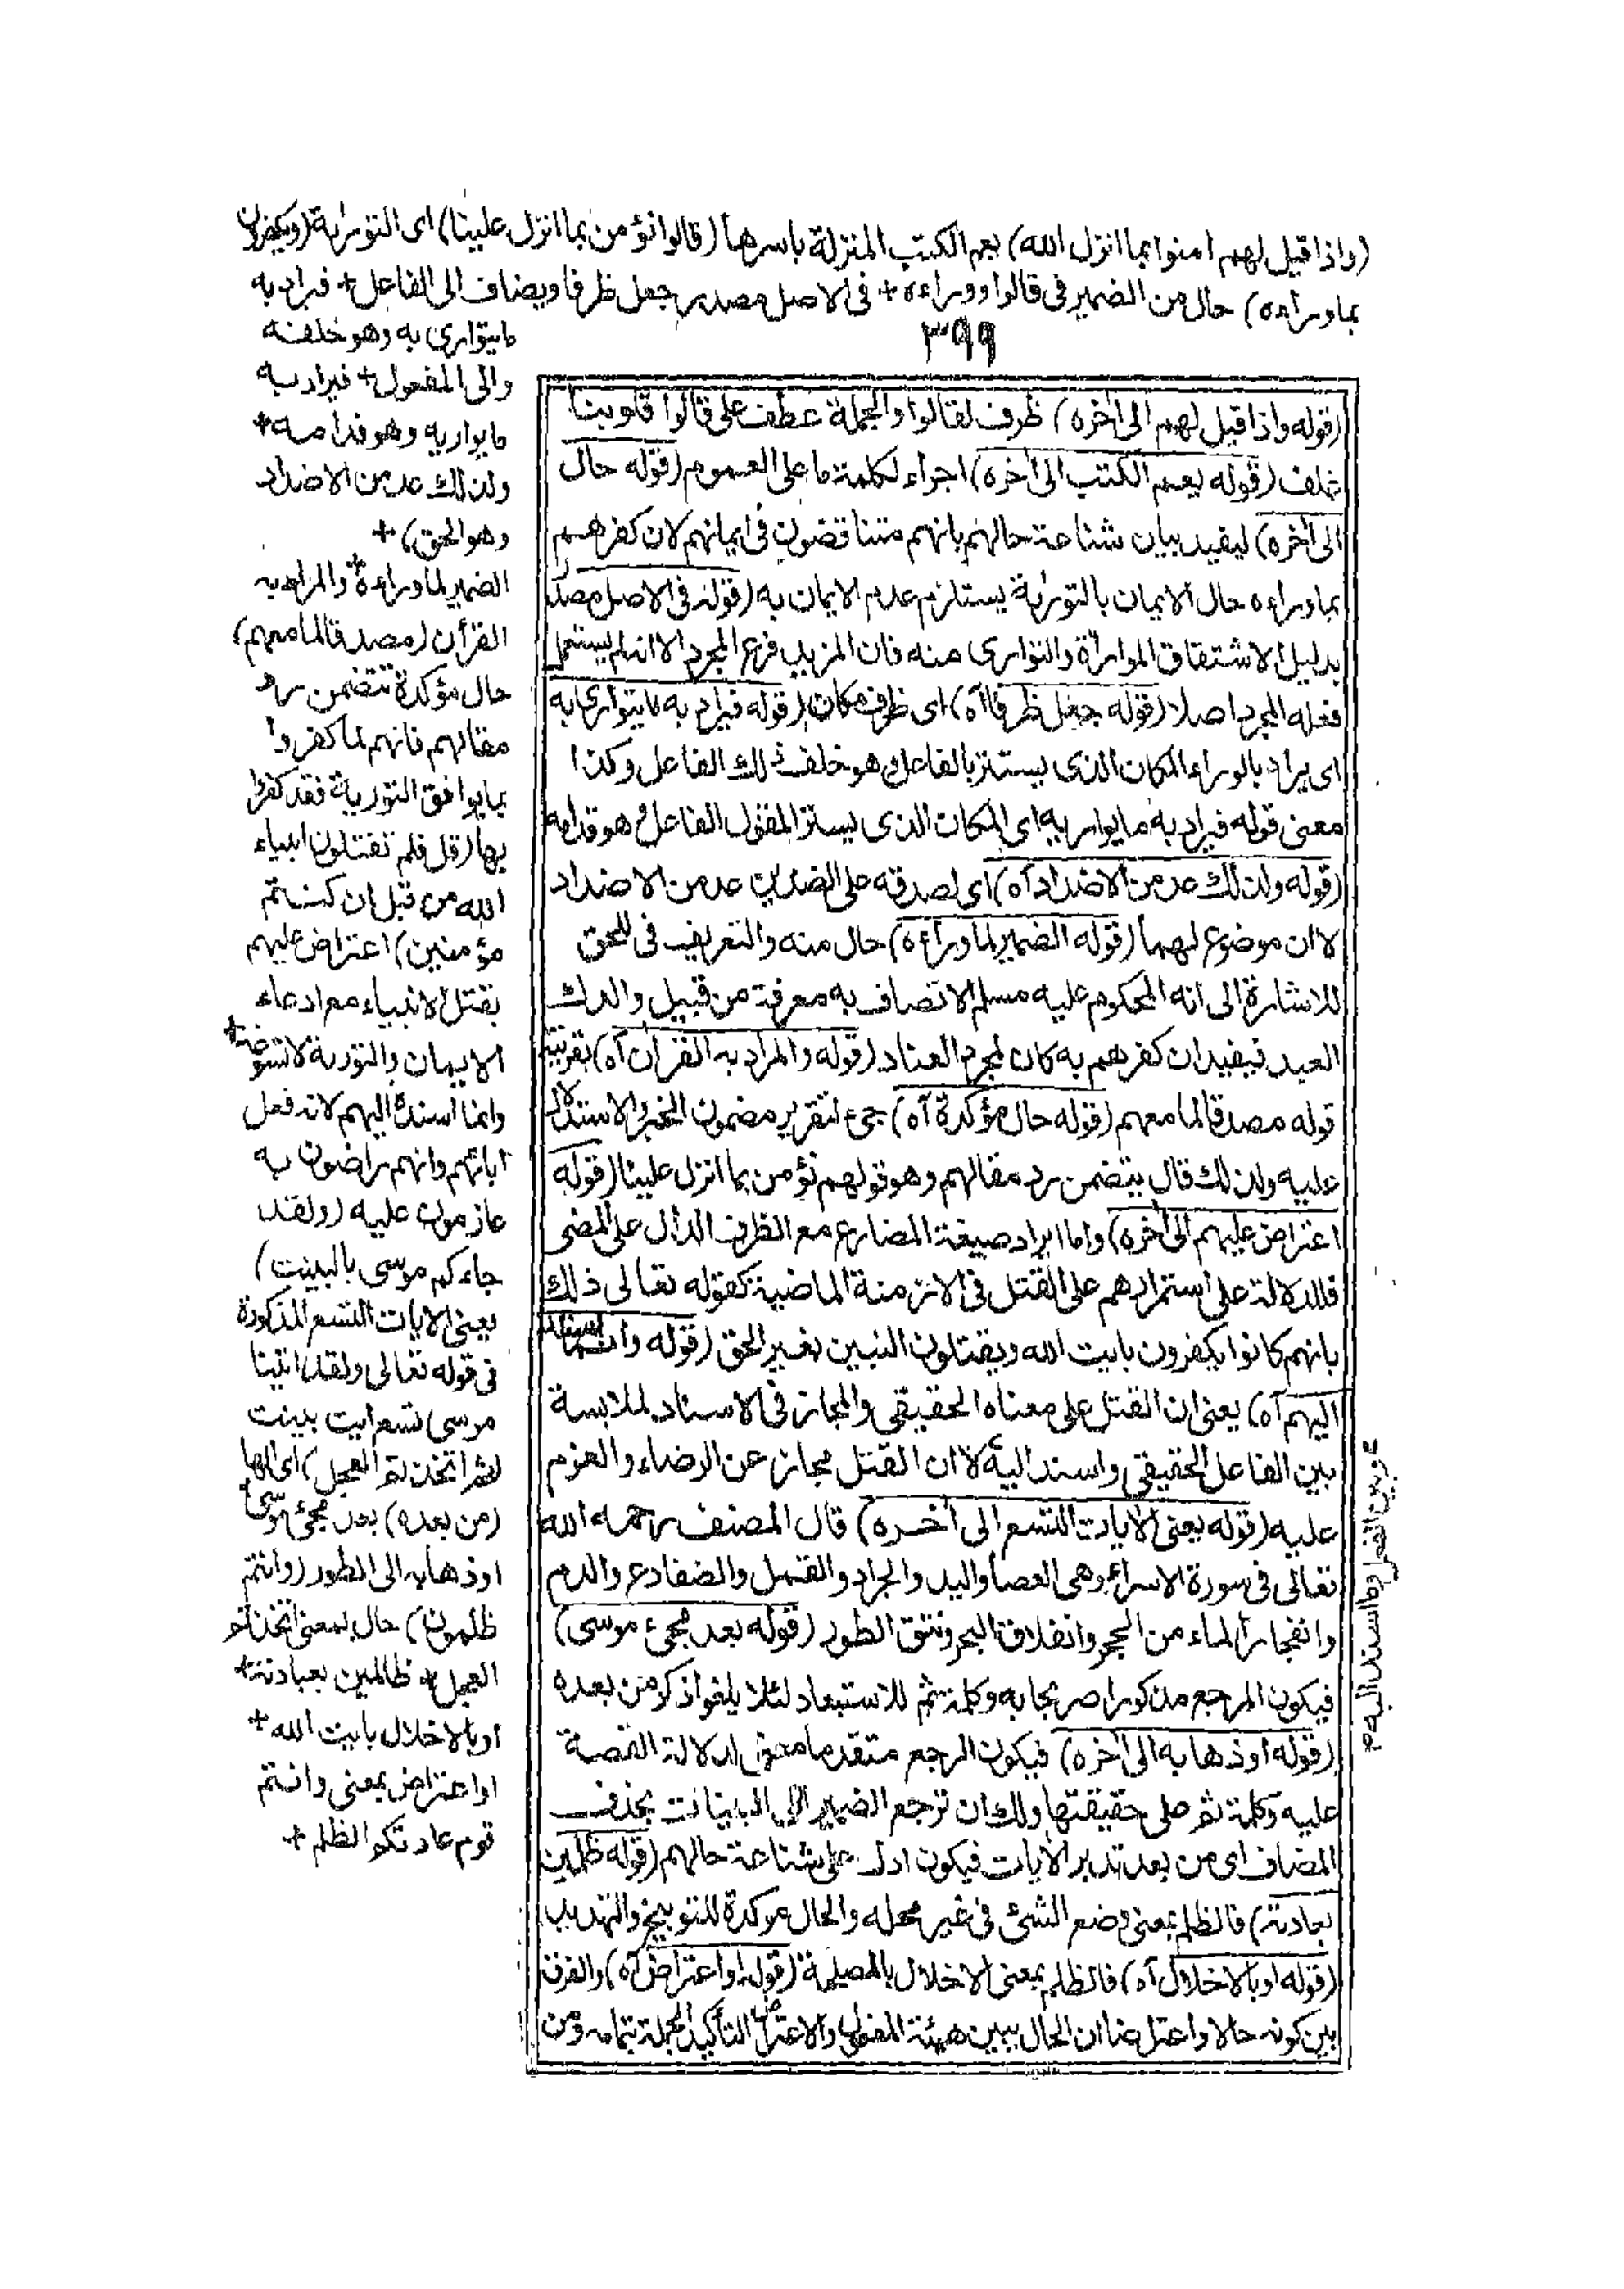 (واذا قيل لهم امنوا بما انزل الله) يعم الكتب المنزلة باسرها (قالوا نؤمن بما انزل علينا) اى التورٰىة (ويكفرون
بما وراءه) حال من الضمير فى قالوا ووراءه + فى الاصل مصدر جعل ظرفا ويضاف الى الفاعل + فيراد به
٣٩٩
مايتوارى به وهو خلفه
والى المفعول + فيراد به
مايواريه وهو قدامه +
ولذلك عد من الاضداد
وهو الحق) +
الضمير لما وراءه + والمراد به
القرأن (مصدقا لما معهم)
حال مؤكدة تتضمن رد
مقالهم فانهم لما كفروا
بما يوافق التورية فقد كفروا
بها (قل فلم تقتلون انبياء
الله من قبل ان كنتم
مؤمنين) اعتراض عليهم
بقتل الانبياء مع ادعاء
الايمان والتورية لاتسوغه +
وانما اسنده اليهم لانه فعل
ابائهم وانهم راضون به
عازمون عليه (ولقد
جاءكم موسى بالبينت)
يعنى الايات التسع المذكورة
فى قوله تعالى ولقد اتينا
موسى تسع ايت بينت
(ثم اتخذتم العجل) اى الها
(من بعده) بعد مجئ موسى
اوذهابه الى الطور (وانتم
ظلمون) حال بمعنى اتخذتم
العجل + ظالمين بعبادته +
اوبالاخلال بايت الله +
اواعتراض بمعنى وانتم
قوم عادتكم الظلم +
(قوله واذا قيل لهم الى اخره) ظرف لقالوا والجملة عطف على قالوا قلوبنا
غلف (قوله يعم الكتب الى اخره) اجراء لكلمة ما على العموم (قوله حال
الى اخره) ليفيد بيان شناعة حالهم بانهم متناقضون فى ايمانهم لان كفرهم
بما وراءه حال الايمان بالتورٰىة يستلزم عدم الايمان به (قوله فى الاصل مصدر
بدليل الاشتقاق المواراة والتوارى منه فان المزيد فرع المجرد الا انه لم يستعمل
فعله المجرد اصلا (قوله جعل ظرفا اه) اى ظرف مكان (قوله فيراد به مايتوارى به
اى يراد بالوراء المكان الذى يستتر بالفاعل وهو خلف ذلك الفاعل وكذا
معنى قوله فيراد به مايواريه اى المكان الذى يستر المفعول الفاعل وهو قدامه
(قوله ولذلك عد من الاضداد اه) اى لصدقه على الضدين عد من الاضداد
لا ان موضوع لهما (قوله الضمير لما وراءه) حال منه والتعريف فى للحق
للاشارة الى انه المحكوم عليه مسلم الاتصاف به معرفة من قبيل والدك
العبد فيفيد ان كفرهم به كان لمجرد العناد (قوله والمراد به القران اه) بقرينة
قوله مصدقا لما معهم (قوله حال مؤكدة اه) جئ لتقرير مضمون الخبر والاستدلال
عليه ولذلك قال يتضمن رد مقالهم وهو قولهم نؤمن بما انزل علينا (قوله
اعتراض عليهم الى اخره) واما ايراد صيغة المضارع مع الظرف الدال على المضى
فللدلالة على استمرارهم على القتل فى الازمنة الماضية كقوله تعالى ذلك
بانهم كانوا يكفرون بايت الله ويقتلون النبيين بغير الحق (قوله وانما اسنده
اليهم اه) يعنى ان القتل على معناه الحقيقى والمجاز فى الاسناد لملابسة
بين الفاعل الحقيقى واسند اليه لا ان القتل مجاز عن الرضاء والعزم
عليه (قوله يعنى الايات التسع الى اخره) قال المصنف رحمه الله
تعالى فى سورة الاسراء وهى العصا واليد والجراد والقمل والضفادع والدم
وانفجار الماء من الحجر وانفلاق البحر ونتق الطور (قوله بعد مجئ موسى)
فيكون المرجع مذكورا صريحا به وكلمة ثم للاستبعاد لئلا يلغو اذكر من بعده
(قوله اوذهابه الى اخره) فيكون المرجع متقدما معنى لدلالة القصة
عليه وكلمة ثم على حقيقتها ولك ان ترجع الضمير الى البينات بحذف
المضاف اى من بعد تدبر الايات فيكون ادل على شناعة حالهم (قوله ظلمين
بعبادته) فالظلم بمعنى وضع الشئ فى غير محله والحال مؤكدة للتوبيخ والتهديد
(قوله اوبالاخلال اه) فالظلم بمعنى الاخلال بالمصلحة (قوله اواعتراض اه) والفرق
بين كونه حالا واعتراضا ان الحال يبين هيئة المفعول والاعتراض التأكيد الجملة بتمامه ومن
وبين الفعل وما اسند اليه م